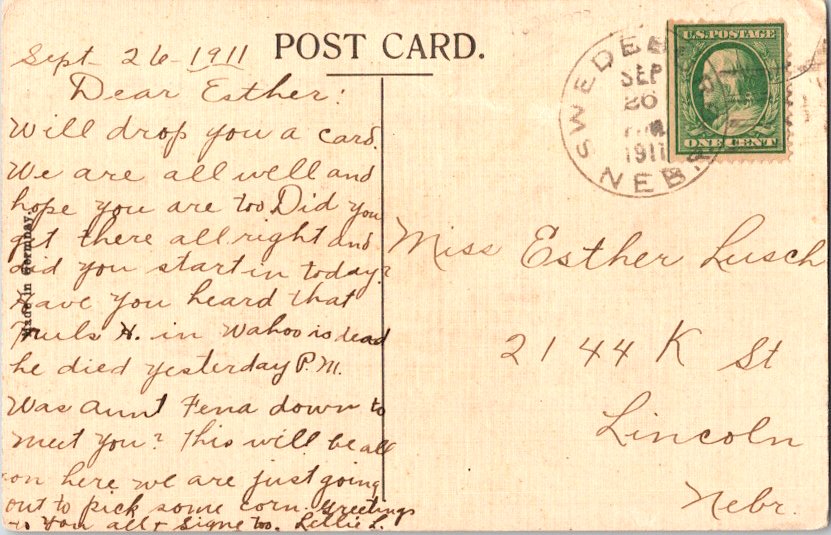 POST CARD.
Sept 26-1911
Dear Esther:
Will drop you a card.
We are all well and
hope you are too Did you
get there all right and
did you start in today?
Have you heard that
Truls H. in Wahoo is dead
he died yesterday P.M.
Was aunt Tena down to
meet you? This will be all
on here we are just going
out to pick some corn. Greetings
to You all & Signe too. Lellie L.
Made in Germany.
SWEDEB
SEP
26
1911
NEBR
U.S. POSTAGE
ONE CENT
Miss Esther Lusch
2144 K St
Lincoln
Nebr.